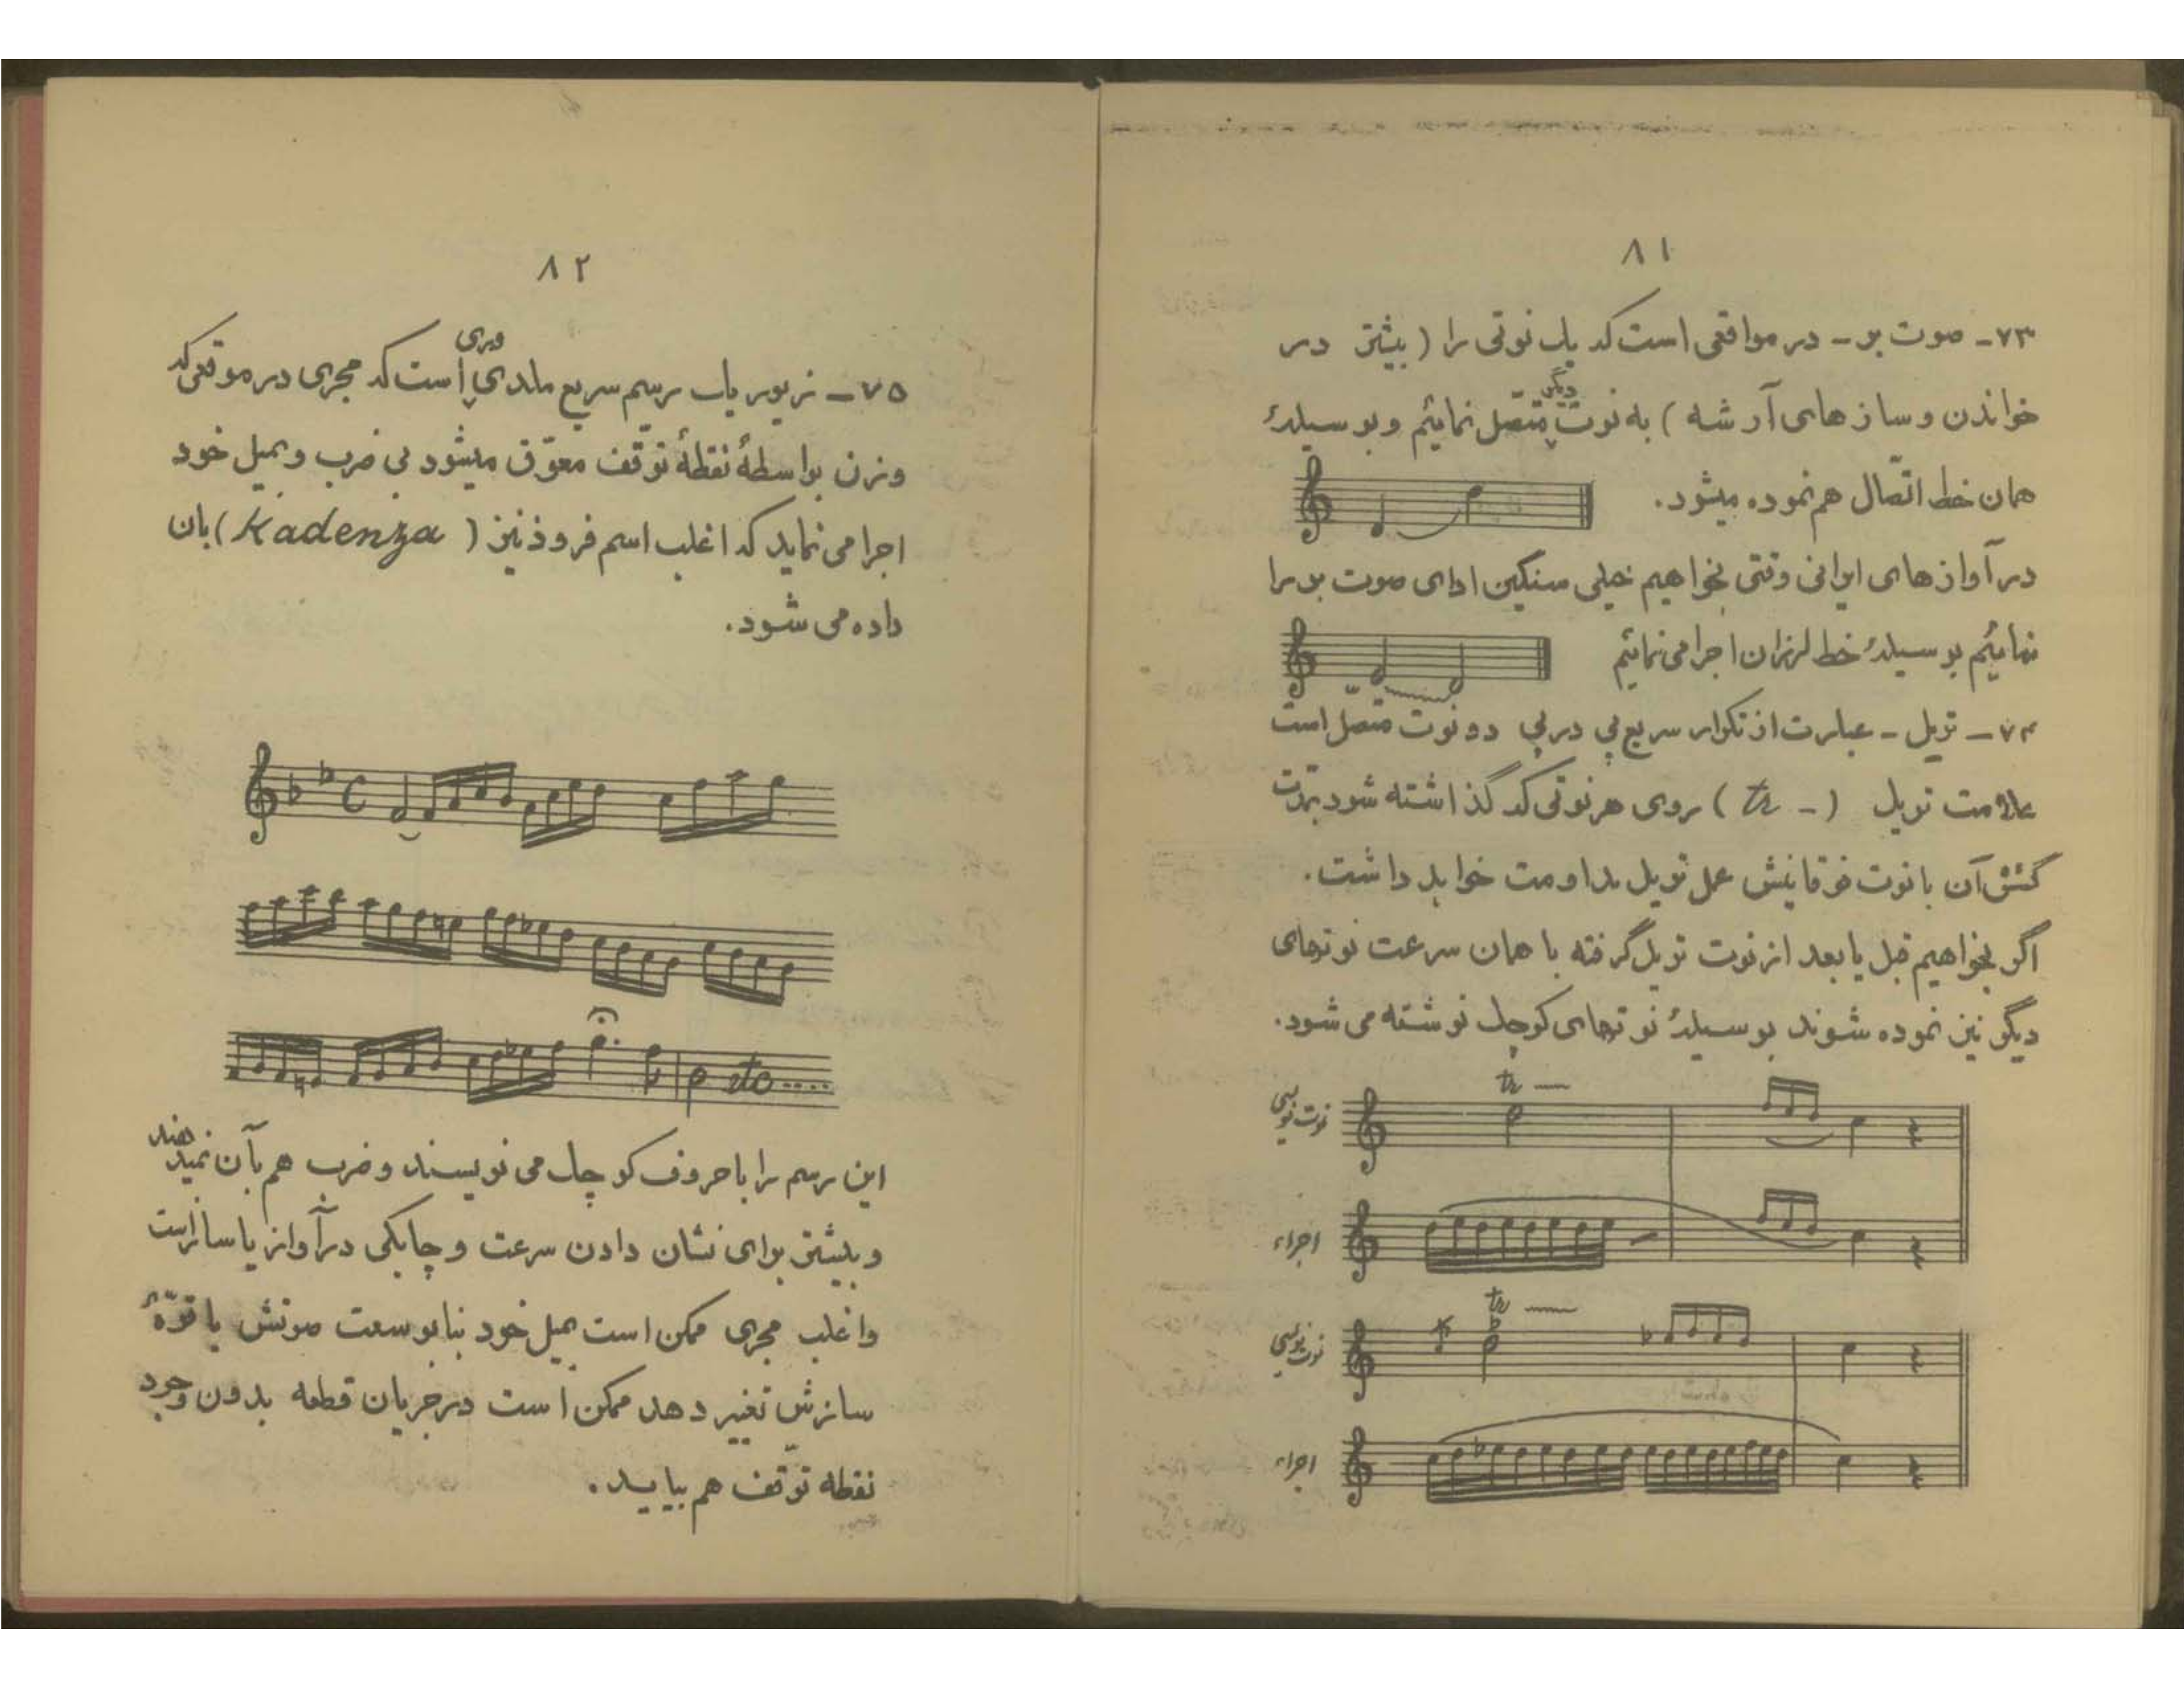 ۸۱
۷۳- صوت بر - در مواقعی است که یک نوتی را ( بیشتر در
خواندن و سازهای آرشه ) به نوت دیگر متصل نمائیم و بوسیلهٔ
همان خط اتّصال هم نموده میشود.
در آوازهای ایرانی وقتی بخواهیم خیلی سنگین ادای صوت بر را
نمائیم بوسیلهٔ خط لرزان اجرا می‌نمائیم
۷۴- تریل - عبارت از تکرار سریع پی در پی دو نوت متصل است
علامت تریل ( tr - ) روی هر نوتی که گذاشته شود بمدت
کشش آن با نوت فوقانیش عمل تریل مداومت خواهد داشت.
اگر بخواهیم قبل یا بعد از نوت تریل گرفته با همان سرعت نوتهای
دیگر نیز نموده شوند بوسیلهٔ نوتهای کوچک نوشته می شود.
نوت نویسی
tr
اجراء
نوت نویسی
tr
اجراء
۸۲
۷۵- زیور یک رسم سریع ملدی است که مجری در موقعی که
وزن بواسطهٔ نقطهٔ توقّف معوّق میشود بی ضرب و بمیل خود
اجرا می نماید که اغلب اسم فرود نیز ( Kadenza ) بان
داده می شود.
C
etc .....
این رسم را با حروف کوچک می نویسند و ضرب هم بآن نمیدهند
و بیشتر برای نشان دادن سرعت و چابکی در آواز یا ساز است
و اغلب مجری ممکن است بمیل خود بنابر وسعت صوتش یا قوّهٔ
سازش تغییر دهد ممکن است در جریان قطعه بدون وجود
نقطه توقّف هم بیاید.